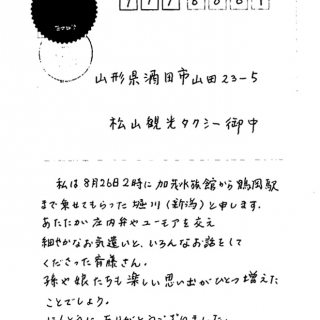 山形県酒田市山田23-5
松山観光タクシー御中
私は8月26日2時に加茂水族館から鶴岡駅
まで乗せてもらった堀川(新潟)と申します.
あたたかな庄内弁やユーモアを交え
細やかなお気遣いと、いろんなお話をして
くださった斉様さん。
孫や娘たちも楽しい思い出がひとつ増えた
ことでしょう。
ほんとうにありがとうございました